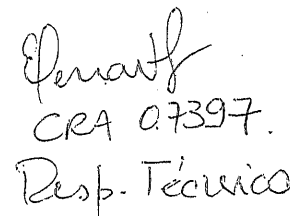 CRA 07397.
Resp. Técnico